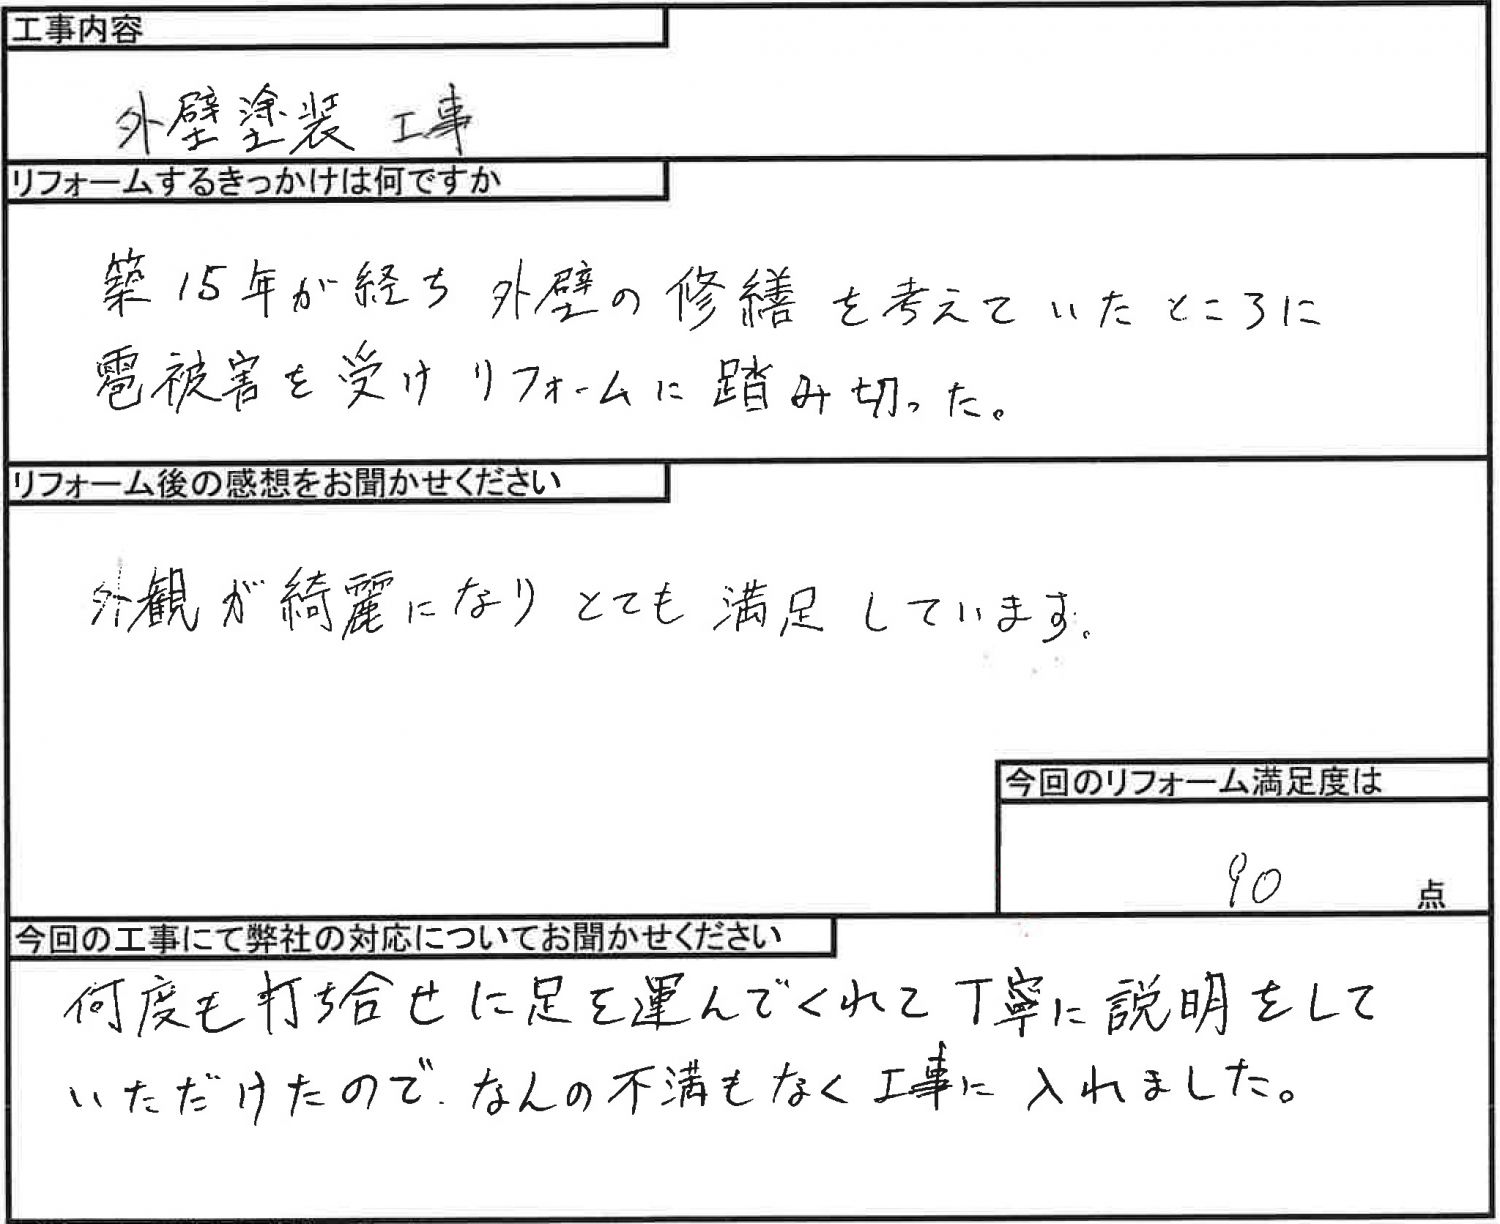 工事内容
外壁塗装 工事
リフォームするきっかけは何ですか
築15年が経ち 外壁の修繕を考えていたところに
雹被害を受けリフォームに踏み切った。
リフォーム後の感想をお聞かせください
外観が綺麗になりとても満足しています。
今回のリフォーム満足度は
90 点
今回の工事にて弊社の対応についてお聞かせください
何度も打ち合せに足を運んでくれて丁寧に説明をして
いただけたので、なんの不満もなく工事に入れました。